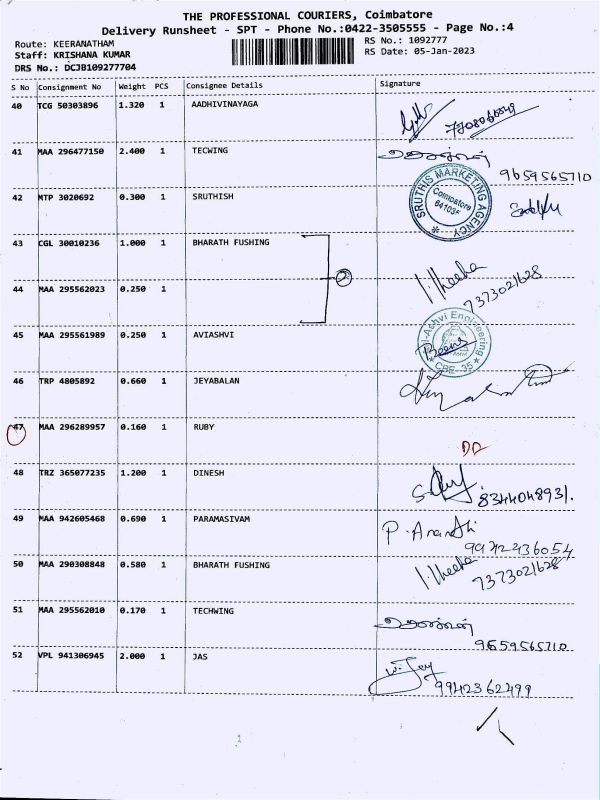 THE PROFESSIONAL COURIERS, Coimbatore
Delivery Runsheet - SPT - Phone No.:0422-3505555 - Page No.:4
Route: KEERANATHAM RS No.: 1092777
Staff: KRISHANA KUMAR RS Date: 05-Jan-2023
DRS No.: DCJB109277704
S No Consignment No Weight PCS Consignee Details Signature
40 TCG 50303896 1.320 1 AADHIVINAYAGA
41 MAA 296477150 2.400 1 TECWING
9659565710
42 MTP 3020692 0.300 1 SRUTHISH
SRUTHIS MARKETING AGENCY
Coimbatore
641035
43 CGL 30010236 1.000 1 BHARATH FUSHING
2
44 MAA 295562023 0.250 1
7373021628
45 MAA 295561989 0.250 1 AVIASHVI
i-Ashvi Engineering
CBE - 35
46 TRP 4805892 0.660 1 JEYABALAN
47 MAA 296289957 0.160 1 RUBY
DD
48 TRZ 365077235 1.200 1 DINESH
8344048931.
49 MAA 942605468 0.690 1 PARAMASIVAM
P. Ananthi
50 MAA 290308848 0.580 1 BHARATH FUSHING
7373021628
51 MAA 295562010 0.170 1 TECHWING
9659565710
52 VPL 941306945 2.000 1 JAS
9942362499